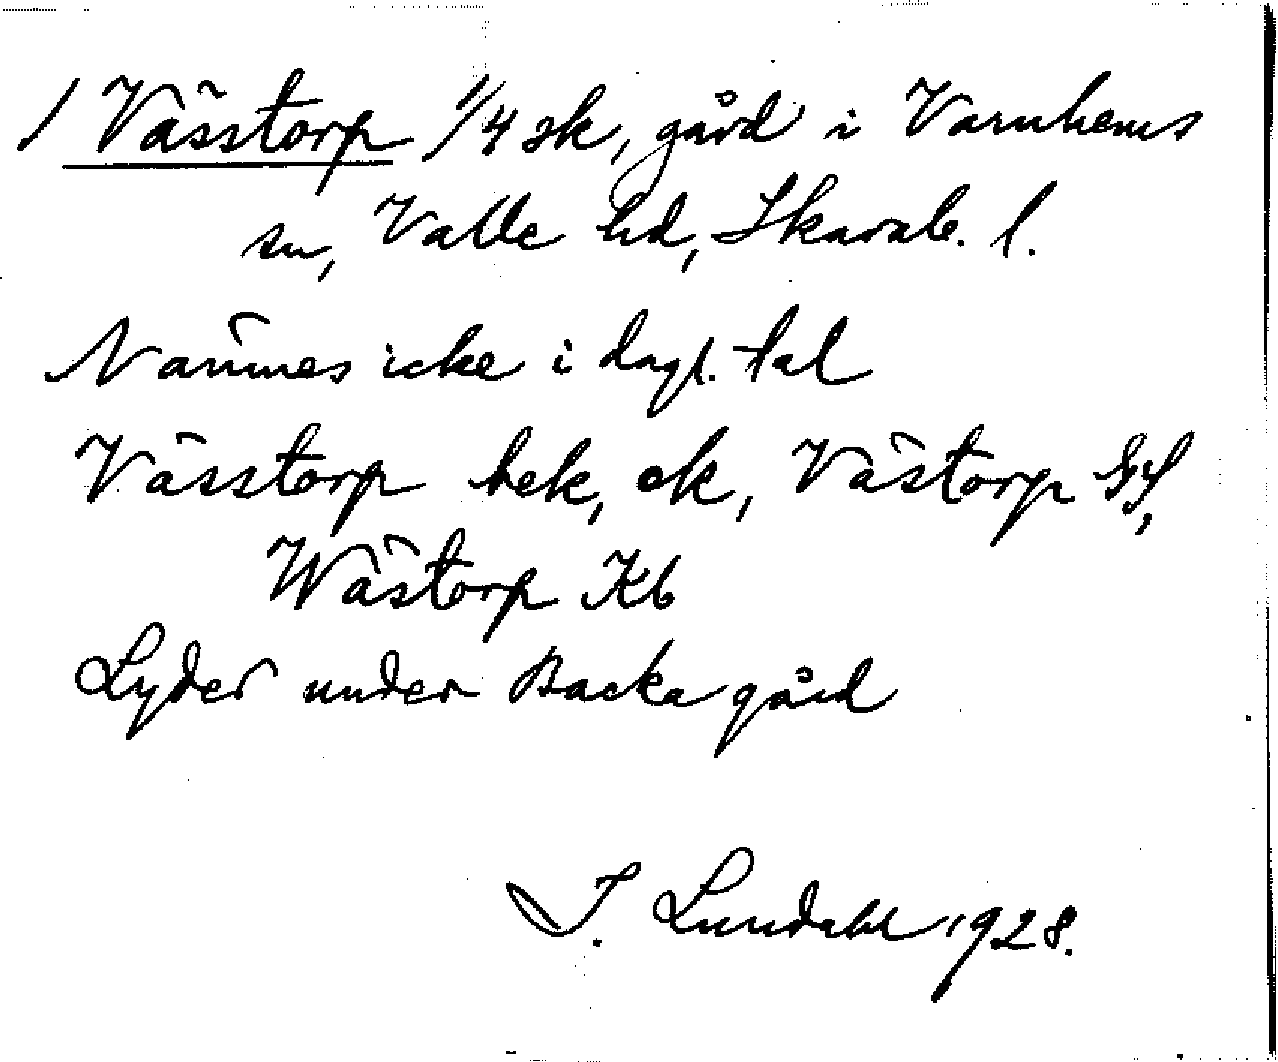 / Vässtorp 1/4 sk, gård i Varnhems
sn, Valle hd, Skarab. l.
Nämnes icke i dagl. tal
Vässtorp bek, ek, Västorp GS,
Wästorp Kb
Lyder under Backa gård
I. Lundahl 1928.